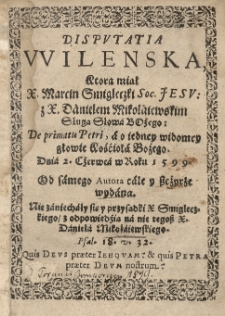 DISPVTATIA
VVILENSKA,
Ktora miał
X. Marcin Smigleczki Soc. JESV:
z X. Dánielem Mikoláiewskim
Sługa Słowá BOżego:
De primatu Petri, á o iedney widomey
głowie Kośćiołá Bożego.
Dniá 2. Czerwcá w Roku 1599.
Od sámego Autorá cále y szczyrze
wydána.
Nie zániechały sie y przysadki X. Smiglecz-
kiego/ z odpowiedźią ná nie tegoż X.
Dániela Mikołáiewskiego.
Psal. 18. v. 32.
Quis DEVS præter IEHOVAM? & quis PETRA
præter DEVM nostrum?